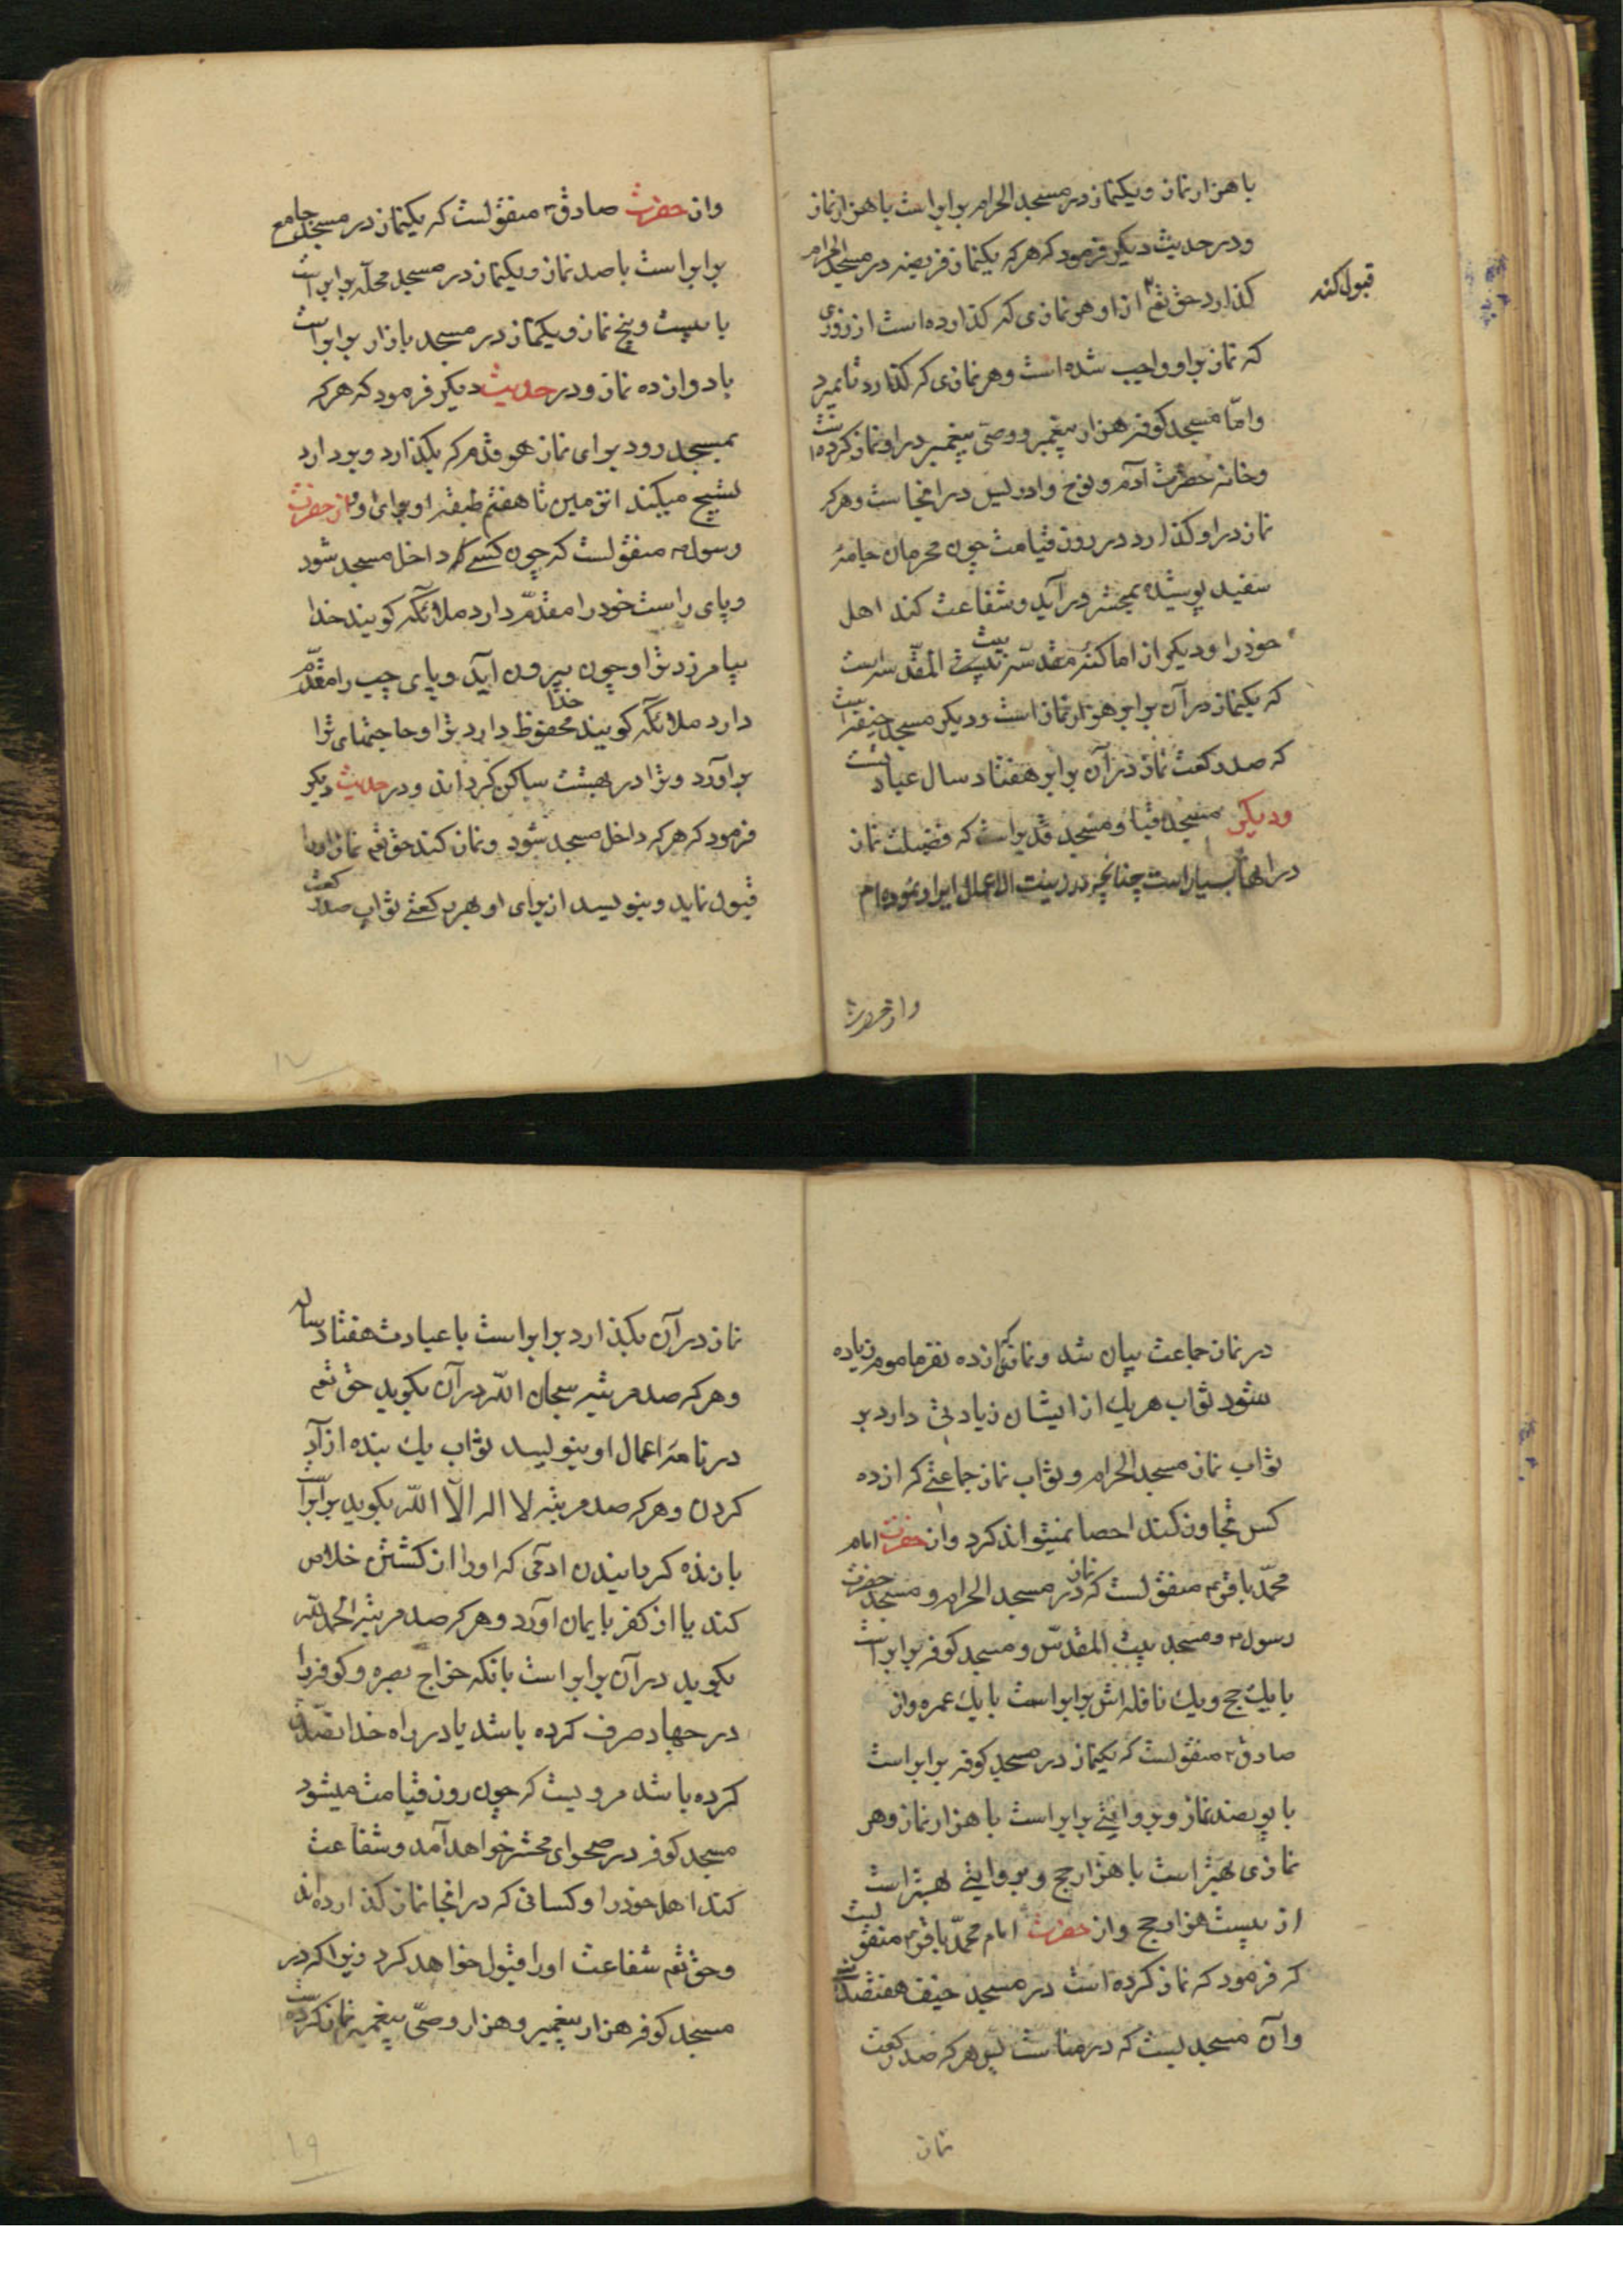 با هزار نماز و یکنماز در مسجد الحرام برابر است با هزار نماز
و در حدیث دیکر فرمود که هر که یکنماز فریضه در مسجد الحرام
کذارد حق تعم از او هر نمازی که کذارده است از روزی
قبول کند
که نماز بر او واجب شده است و هر نمازی که کذارد تا بمیرد
و امّا مسجد کوفه هزار پیغمبر و وصیّ پیغمبر در او نماز کرده است
و خانه حضرت آدم و نوح و ادریس در انجاست و هر که
نماز در او کذارد در روز قیامت چون محرمان جامهٔ
سفید پوشیده بمحشر در آید و شفاعت کند اهل
خود را و دیکر از اماکنهٔ مقدسه بیت المقدس است
که یکنماز در آن برابر هزار نماز است و دیکر مسجد خیف است
که صد رکعت نماز در آن برابر هفتاد سال عبادتست
و دیکر مسجد قبا و مسجد قدیر است که فضیلت نماز
در انها بسیار است چنانچه در زینت الاعمال ایراد نموده ام
و از حضرت
و از حضرت صادق م منقولست که یکنماز در مسجد جامع
برابر است با صد نماز و یکنماز در مسجد محلّه برابر است
با بیست و پنج نماز و یکنماز در مسجد بازار برابر است
با دوازده نماز و در حدیث دیکر فرمود که هر که
بمسجد رود برای نماز هر قدم که بکذارد و بردارد
تسبیح میکند از زمین تا هفتم طبقه او برای او و از حضرت
رسول م منقولست که چون کسے که داخل مسجد شود
و پای راست خود را مقدّم دارد ملائکه کویند خدا
بیامرزد ترا و چون بیرون آید و پای چپ را مقدّم
دارد ملائکه کویند خدا محفوظ دارد ترا و حاجتهای ترا
براورد و ترا در بهشت ساکن کرداند و در حدیث دیکر
فرمود که هر که داخل مسجد شود و نماز کند حق تعم نماز او را
قبول نماید و بنویسد از برای او بهر رکعتے ثواب صد رکعت
۱۷
در نماز جماعت بیان شد و نماز که از ده نفر ماموم زیاده
شود ثواب هر یك از ایشان زیادتی دارد بر
ثواب نماز مسجد الحرام و ثواب نماز جماعتے که از ده
کس تجاوز کند احصا نمیتواند کرد و از حضرت امام
محمّد باقر م منقولست که نماز در مسجد الحرام و مسجد حضرت
رسول م و مسجد بیت المقدّس و مسجد کوفه برابر است
با یك حج و یك نافله اش برابر است با یك عمره و از
صادق م منقولست که یکنماز در مسجد کوفه برابر است
با پوصد نماز و بروایتے برابر است با هزار نماز و هر
نمازی بهتر است با هزار حج و بروایتے بهتر است
از بیست هزار حج و از حضرت امام محمّد باقر م منقولست
که فرمود که نماز کرده است در مسجد خیف هفتصد
و آن مسجدیست که در مناست پس هر که صد رکعت
نماز
نماز در آن بکذارد برابر است با عبادت هفتاد ساله
و هر که صد مرتبه سبحان اللّه در آن بکوید حق تعم
در نامه اعمال او بنویسد ثواب یك بنده ازاد
کردن و هر که صد مرتبه لا اله الّا اللّه بکوید برابر است
با زنده کردانیدن ادمی که او را از کشتن خلاص
کند یا از کفر بایمان آورد و هر که صد مرتبه الحمد للّه
بکوید در آن برابر است بانکه خراج بصره و کوفه را
در جهاد صرف کرده باشد یا در راه خدا تصدّق
کرده باشد مرویست که چون روز قیامت میشود
مسجد کوفه در صحرای محشر خواهد آمد و شفاعت
کند اهل خود را و کسانی که در انجا نماز کذارده اند
و حق تعم شفاعت او را قبول خواهد کرد زیرا که در
مسجد کوفه هزار پیغمبر و هزار وصیّ پیغمبر نماز کرده است
۱۹